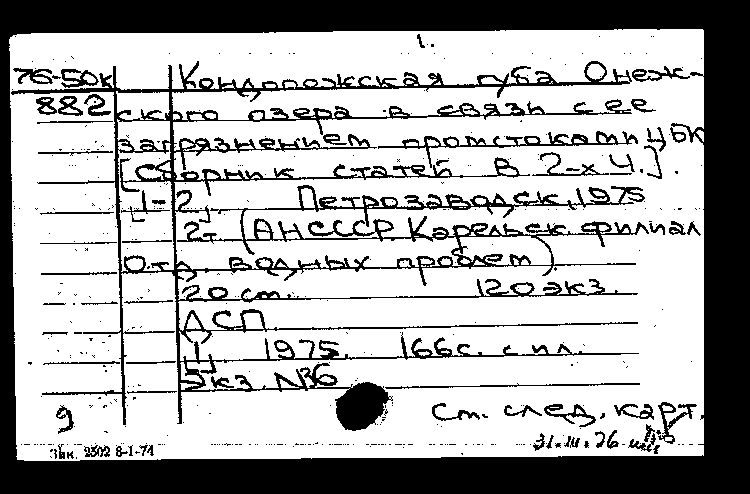 1.
76-50к Кондопожская губа Онеж-
882 ского озера в связи с ее
загрязнением промстоками ЦБК
[Сборник статей. В 2-х ч.].
[1-2]. Петрозаводск, 1975
2т. (АН СССР. Карельск. филиал
Отд. водных проблем).
20 см. 120 экз.
ДСП
[1] 1975. 166 с. с ил.
Экз. №36
9 См. след. карт.
31.III.76
Зак. 2502 8-1-74